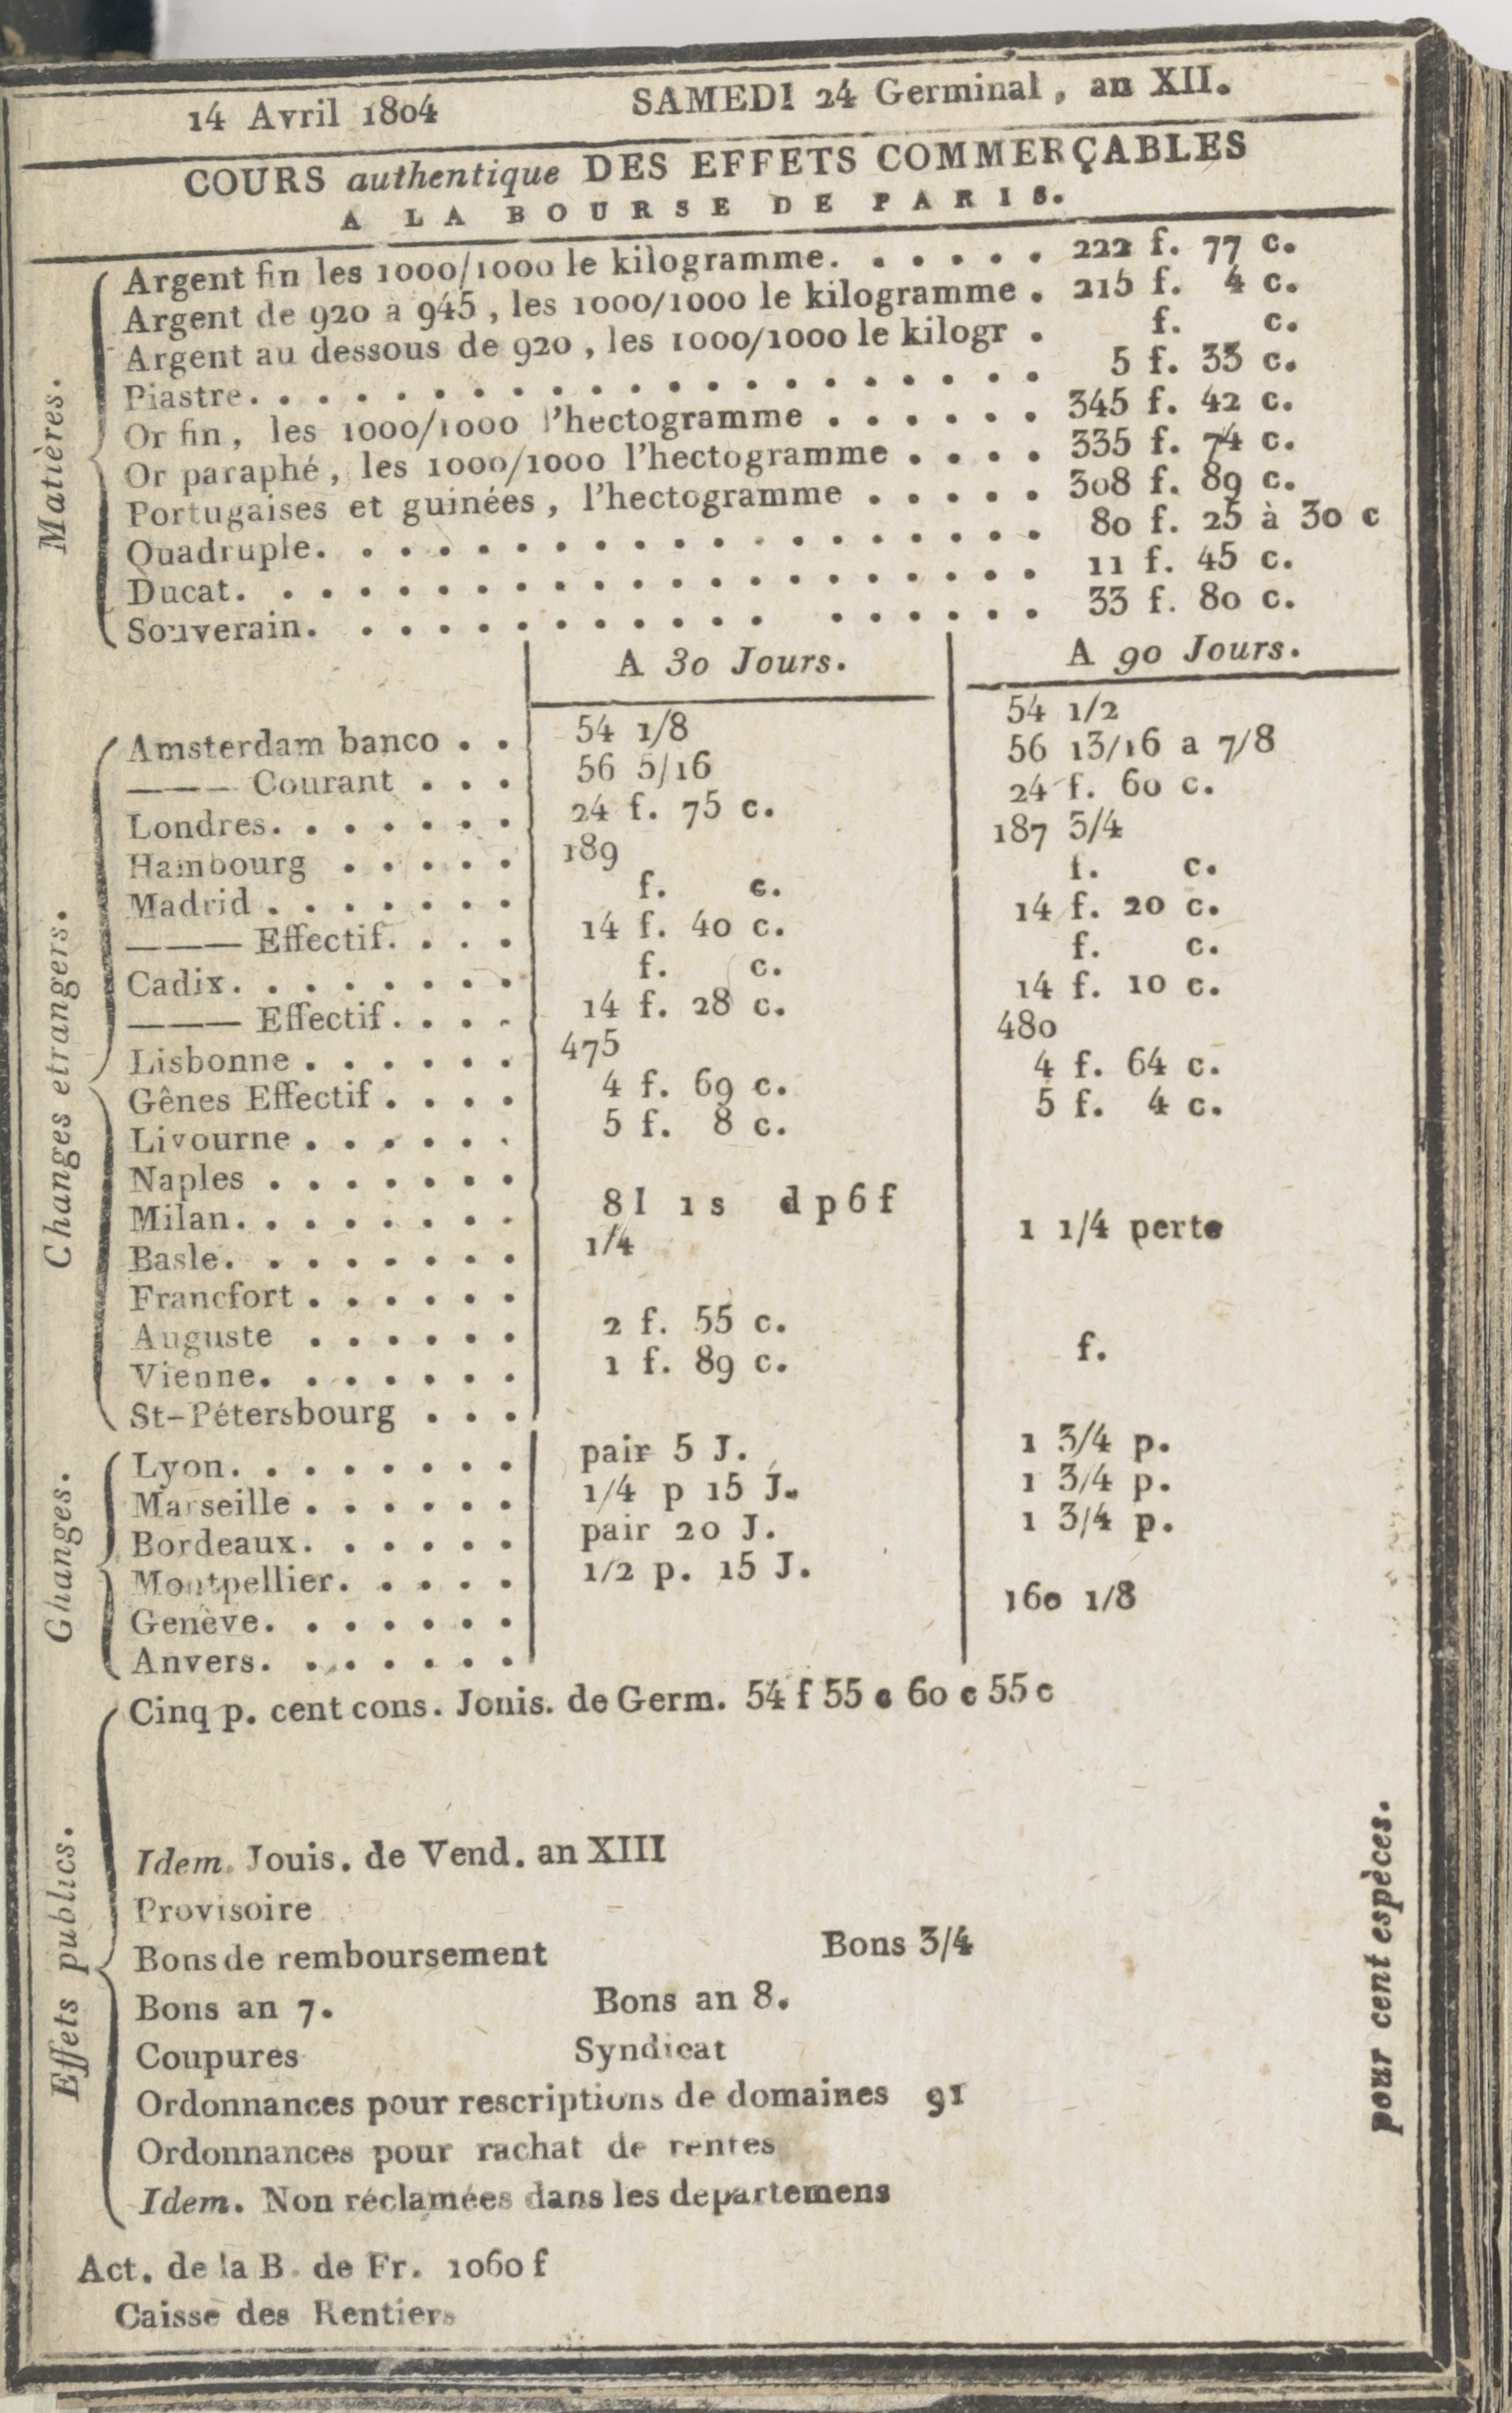 14 Avril 1804 SAMEDI 24 Germinal, an XII.
COURS authentique DES EFFETS COMMERÇABLES
A LA BOURSE DE PARIS.
Matières.
Argent fin les 1000/1000 le kilogramme. . . . . . 222 f. 77 c.
Argent de 920 a 945, les 1000/1000 le kilogramme . 215 f. 4 c.
Argent au dessous de 920, les 1000/1000 le kilogr . f. c.
Piastre. . . . . . . . . . . . . . . . . . . . . 5 f. 33 c.
Or fin, les 1000/1000 l'hectogramme . . . . . . 345 f. 42 c.
Or paraphé, les 1000/1000 l'hectogramme . . . . 335 f. 74 c.
Portugaises et guinées, l'hectogramme . . . . . 308 f. 89 c.
Quadruple. . . . . . . . . . . . . . . . . . . 80 f. 25 à 30 c
Ducat. . . . . . . . . . . . . . . . . . . . . 11 f. 45 c.
Souverain. . . . . . . . . . . . . . . . . . 33 f. 80 c.
A 30 Jours. A 90 Jours.
Changes etrangers.
Amsterdam banco . . 54 1/8 54 1/2
——— Courant . . . 56 5/16 56 13/16 a 7/8
Londres. . . . . . . 24 f. 75 c. 24 f. 60 c.
Hambourg . . . . . 189 187 3/4
Madrid . . . . . . . f. c. f. c.
——— Effectif. . . . 14 f. 40 c. 14 f. 20 c.
Cadix. . . . . . . . f. c. f. c.
——— Effectif. . . . 14 f. 28 c. 14 f. 10 c.
Lisbonne . . . . . . 475 480
Gênes Effectif . . . . 4 f. 69 c. 4 f. 64 c.
Livourne . . . . . . 5 f. 8 c. 5 f. 4 c.
Naples . . . . . . .
Milan. . . . . . . . 8 l 1 s d p 6 f
Basle. . . . . . . . 1/4 1 1/4 perte
Francfort . . . . . .
Auguste . . . . . . 2 f. 55 c.
Vienne. . . . . . . 1 f. 89 c. f.
St-Pétersbourg . . .
Ghanges.
Lyon. . . . . . . . pair 5 J. 1 3/4 p.
Marseille . . . . . . 1/4 p 15 J. 1 3/4 p.
Bordeaux. . . . . . pair 20 J. 1 3/4 p.
Montpellier. . . . . 1/2 p. 15 J.
Genève. . . . . . . 160 1/8
Anvers. . . . . . .
Effets publics.
Cinq p. cent cons. Jouis. de Germ. 54 f 55 c 60 c 55 c
Idem. Jouis. de Vend. an XIII
Provisoire
Bons de remboursement Bons 3/4
Bons an 7. Bons an 8.
Coupures Syndicat
Ordonnances pour rescriptions de domaines 91
Ordonnances pour rachat de rentes
Idem. Non réclamées dans les departemens
pour cent espèces.
Act. de la B. de Fr. 1060 f
Caisse des Rentiers